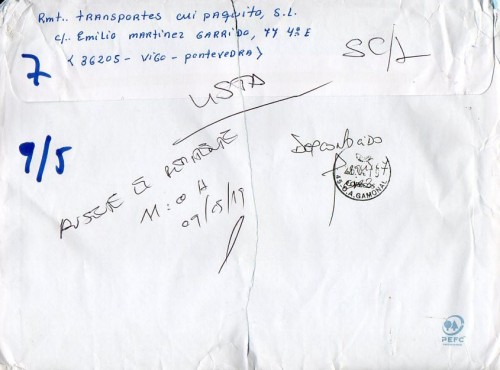 Rmt.. TRANSPORTES CUI PAQUITO, S.L.
C/.. Emilio Martinez GARRIDO, 77 4º E
(36205 - Vigo - Pontevedra)
7
SC/
LISTA
9/5
Desconocido
AUSENTE
11:00 H
09/05/19
GAMONAL
PEFC